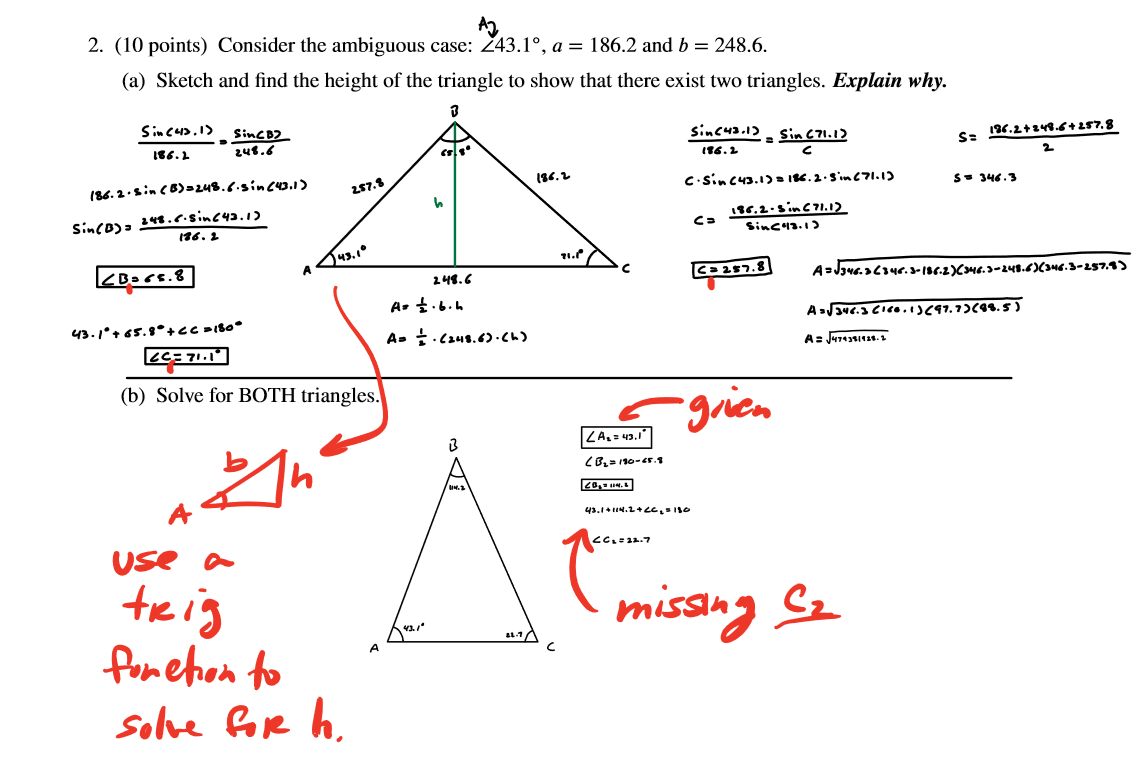 A2
2. (10 points) Consider the ambiguous case: ∠43.1°, a = 186.2 and b = 248.6.
(a) Sketch and find the height of the triangle to show that there exist two triangles. Explain why.
Sin(43.1)/186.2 = Sin(B)/248.6
186.2·Sin(B)=248.6·Sin(43.1)
Sin(B)= 248.6·Sin(43.1)/186.2
∠B=65.8
43.1°+65.8°+∠C=180°
∠C=71.1°
B
65.8°
257.8
186.2
h
43.1°
71.1°
A
C
248.6
A= 1/2 ·b·h
A= 1/2 ·(248.6)·(h)
Sin(43.1)/186.2 = Sin(71.1)/C
C·Sin(43.1)=186.2·Sin(71.1)
C= 186.2·Sin(71.1)/Sin(43.1)
C=257.8
S= 186.2+248.6+257.8/2
S= 346.3
A=√346.3(346.3-186.2)(346.3-248.6)(346.3-257.8)
A=√346.3(160.1)(97.7)(88.5)
A=√479381928.2
(b) Solve for BOTH triangles.
b
h
A
use a
trig
function to
solve for h.
B
114.2
43.1°
22.7
A
C
given
∠A₂=43.1°
∠B₂=180-65.8
∠B₂=114.2
43.1+114.2+∠C₂=180
∠C₂=22.7
missing C2